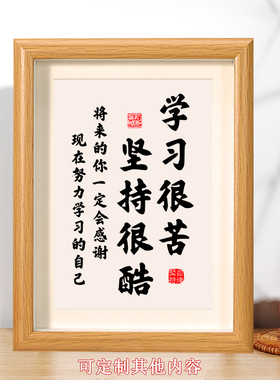 学习很苦
坚持很酷
将来的你一定会感谢
现在努力学习的自己
可定制其他内容